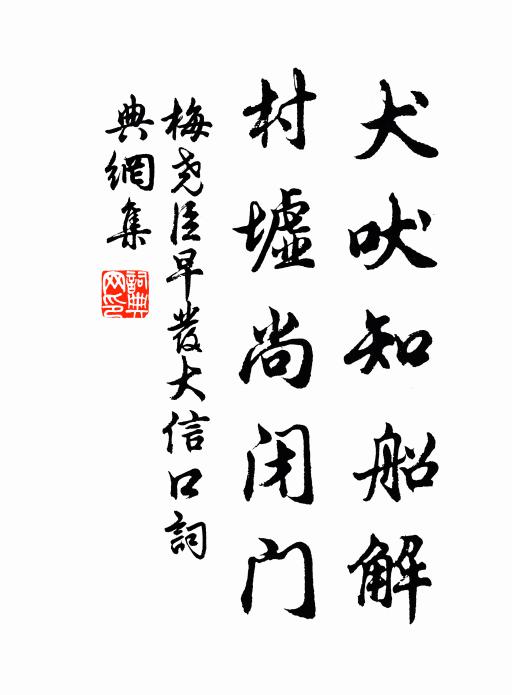 犬吠知船解
村墟尚闭门
梅尧臣早發大信口詞
典網集
詞典網印